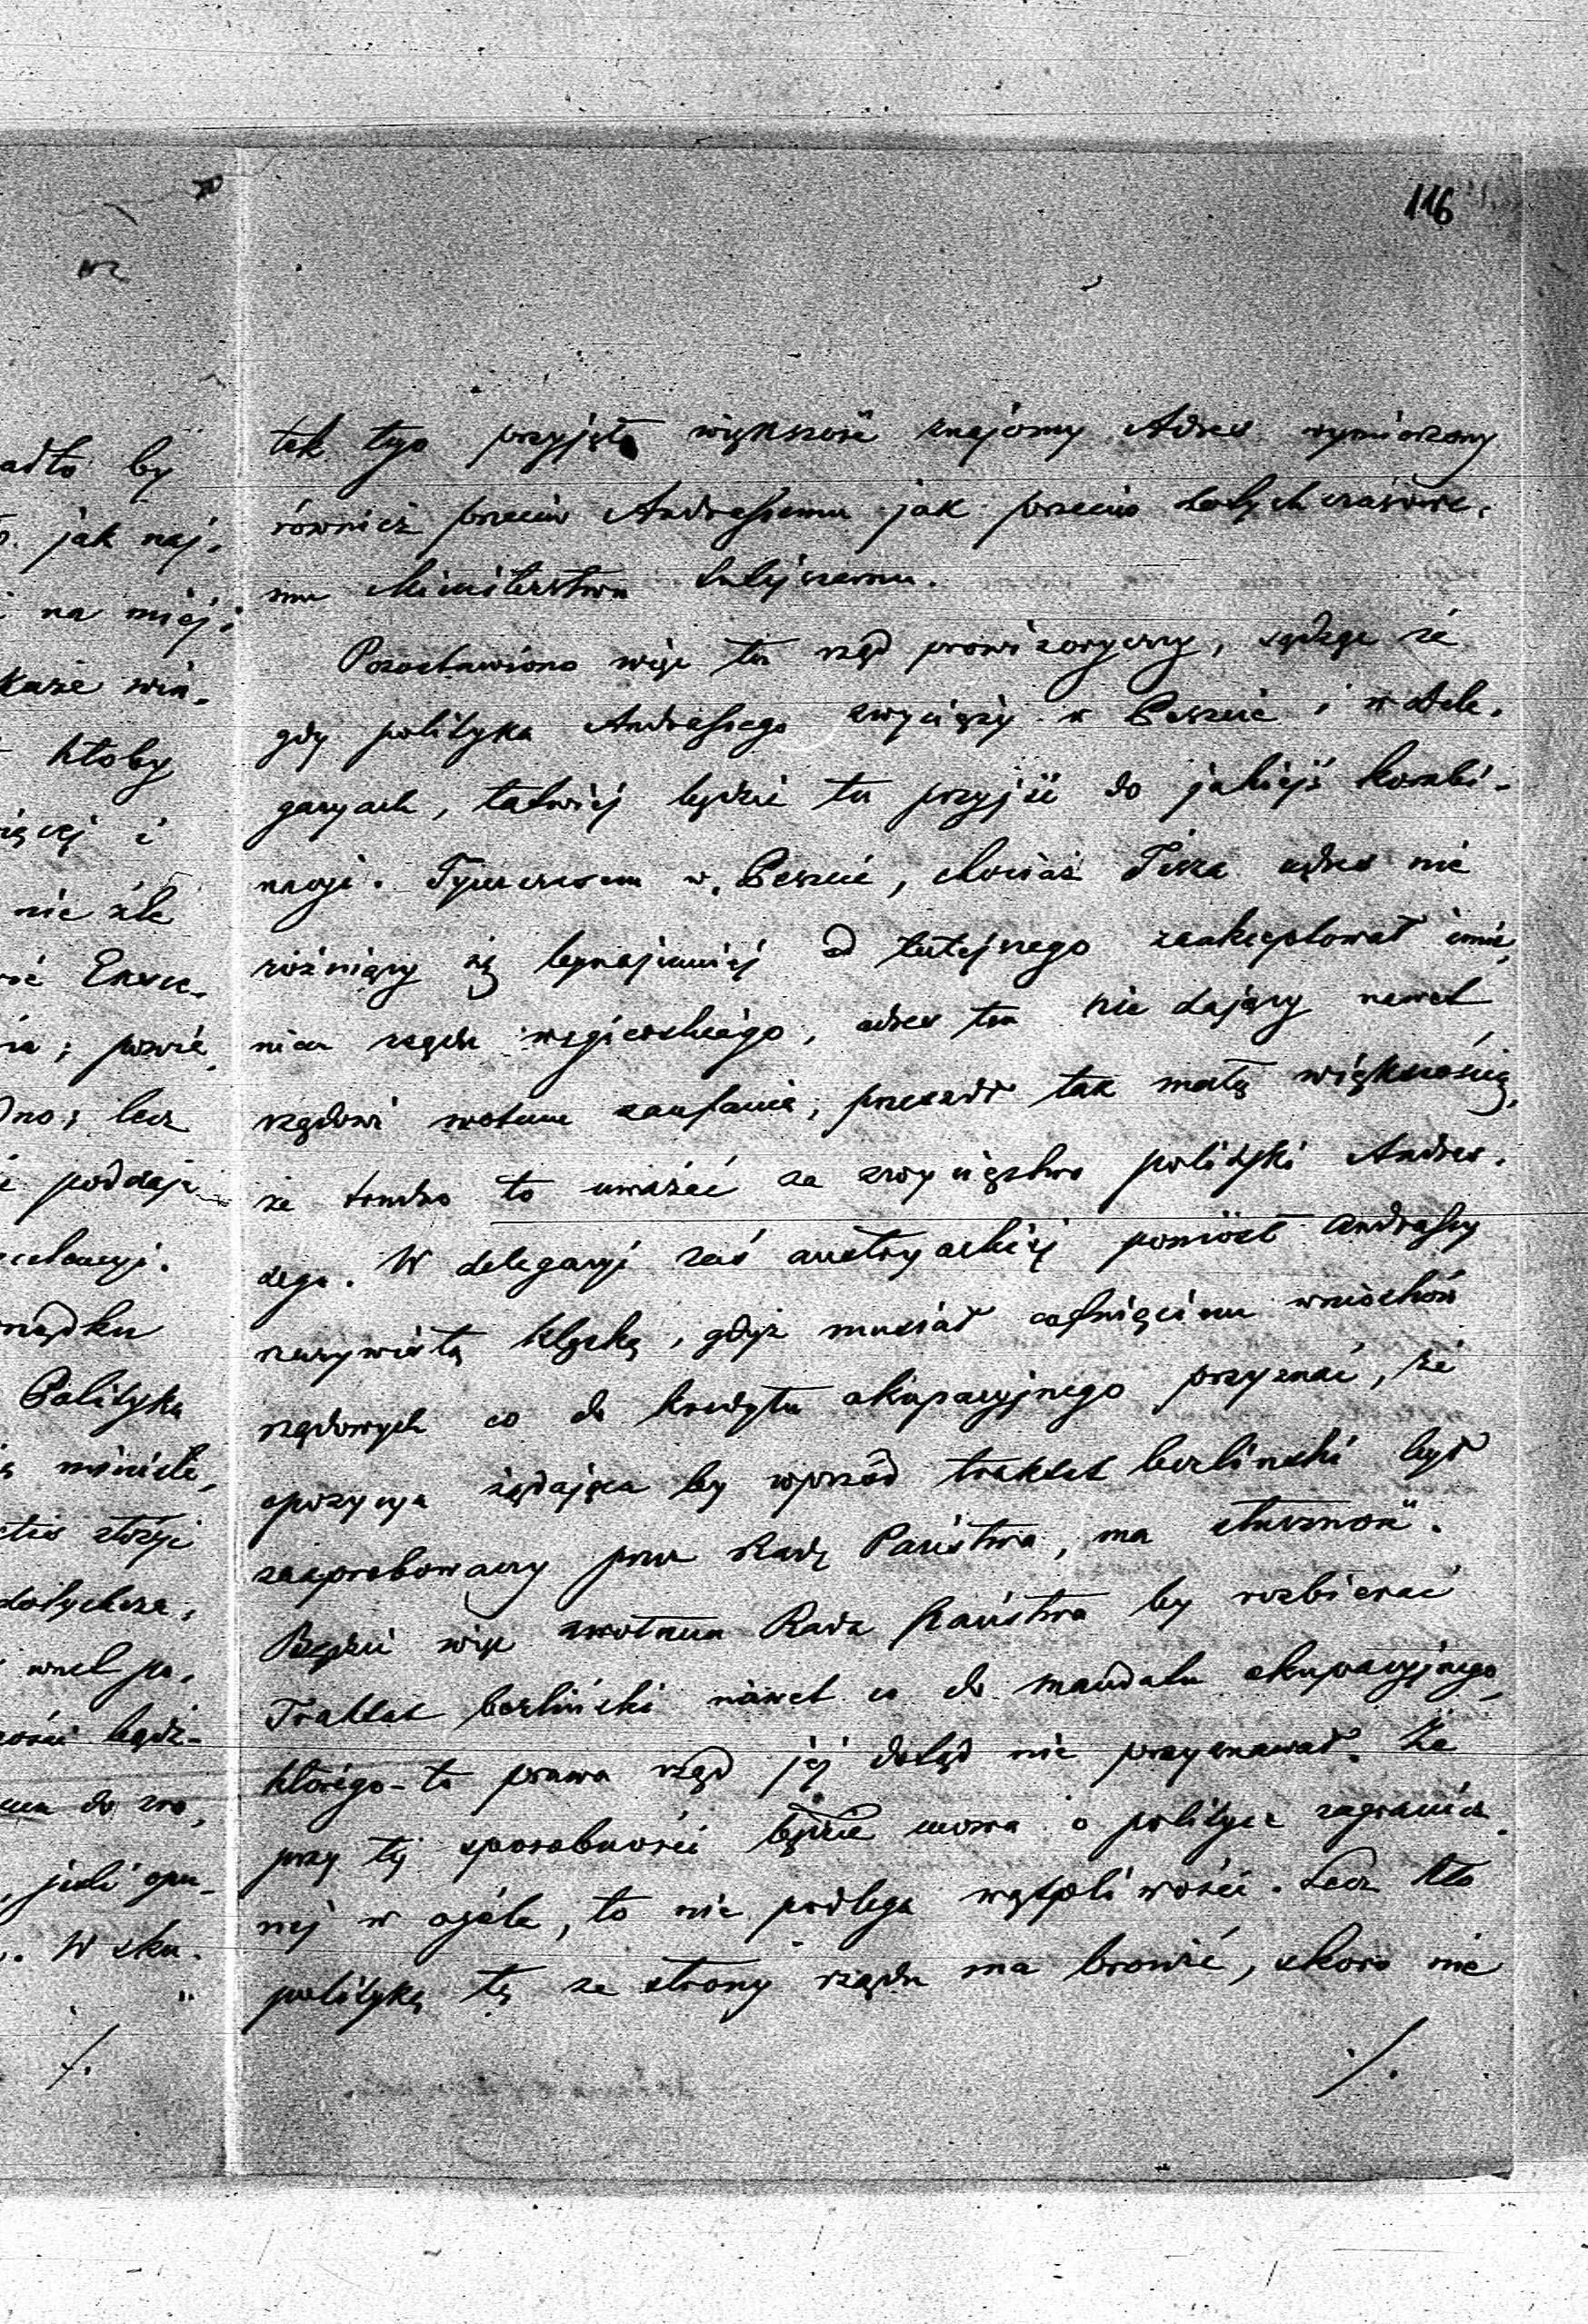 116
tek tego przyjęła większość znajomy Adres wymierzony
również przeciw Andrassemu jak przeciw dotychczasowe-
mu Ministerstwu tutejszemu.
Pozostawiono więc tu rząd prowizoryczny, sądząc że
gdy polityka Andrassego zwycięży w Peszcie i w dele-
gacyach, łatwiej będzie tu przyjść do jakiejś kombi-
nacyi. Tymczasem w Peszcie, chociaż Tisza adres nie
różniący się bynajmniej od tutejszego zaakceptował imie-
niem rządu węgierskiego, adres ten nie dający nawet
rządowi wotum zaufania, przeszedł tak małą większością,
że trudno to uważać za zwycięstwo polityki Andras-
sego. W delegacyi zaś austryackiej poniósł Andrassy
rzeczywistą klęskę, gdyż musiał cofnięciem wniosków
rządowych co do kredytu okupacyjnego przyznać, że
opozycya żądająca by wprzód traktat berliński był
zaaprobowany przez Radę Państwa, ma słuszność.
Będzie więc zwołana Rada Państwa by rozbierać
Traktat berliński nawet co do mandatu okupacyjnego,
którego-to prawa rząd jej dotąd nie przyznawał. Że
przy tej sposobności będzie mowa o polityce zagranicz-
nej w ogóle, to nie podlega wątpliwości. Lecz kto
politykę tę ze strony rządu ma bronić, skoro nie
./.
adło by
jak naj-
na miej-
każe
któby
więcej i
nie źle
powie
lecz
poddaje
Polityka
ministe-
złożyć
dotychcza-
wnet po-
będzie-
do zro-
jeśli opu-
W sku-
./.